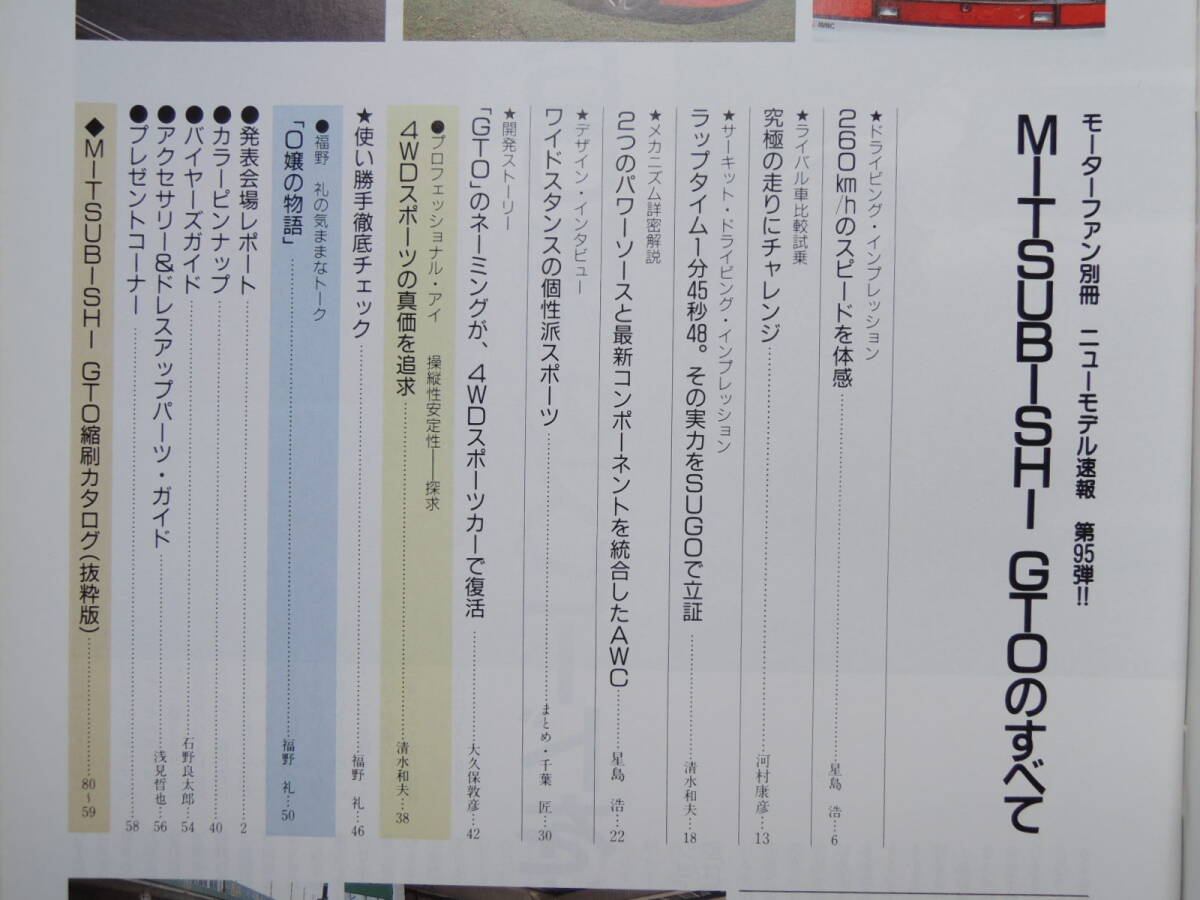 モーターファン別冊 ニューモデル速報 第95弾!!
MITSUBISHI GTOのすべて
★ドライビング・インプレッション
260km/hのスピードを体感……星島 浩…6
★ライバル車比較試乗
究極の走りにチャレンジ……河村康彦…13
★サーキット・ドライビング・インプレッション
ラップタイム1分45秒48。その実力をSUGOで立証……清水和夫…18
★メカニズム詳密解説
2つのパワーソースと最新コンポーネントを統合したAWC……星島 浩…22
★デザイン・インタビュー
ワイドスタンスの個性派スポーツ……まとめ・千葉 匠…30
★開発ストーリー
「GTO」のネーミングが、4WDスポーツカーで復活……大久保敦彦…42
●プロフェッショナル・アイ 操縦性安定性──探求
4WDスポーツの真価を追求……清水和夫…38
★使い勝手徹底チェック……福野 礼…46
●福野 礼の気ままなトーク
「O嬢の物語」……福野 礼…50
●発表会場レポート……2
●カラーピンナップ……40
●バイヤーズガイド……石野良太郎…54
●アクセサリー&ドレスアップパーツ・ガイド……浅見哲也…56
●プレゼントコーナー……58
◆MITSUBISHI GTO縮刷カタログ(抜粋版)……80〜59